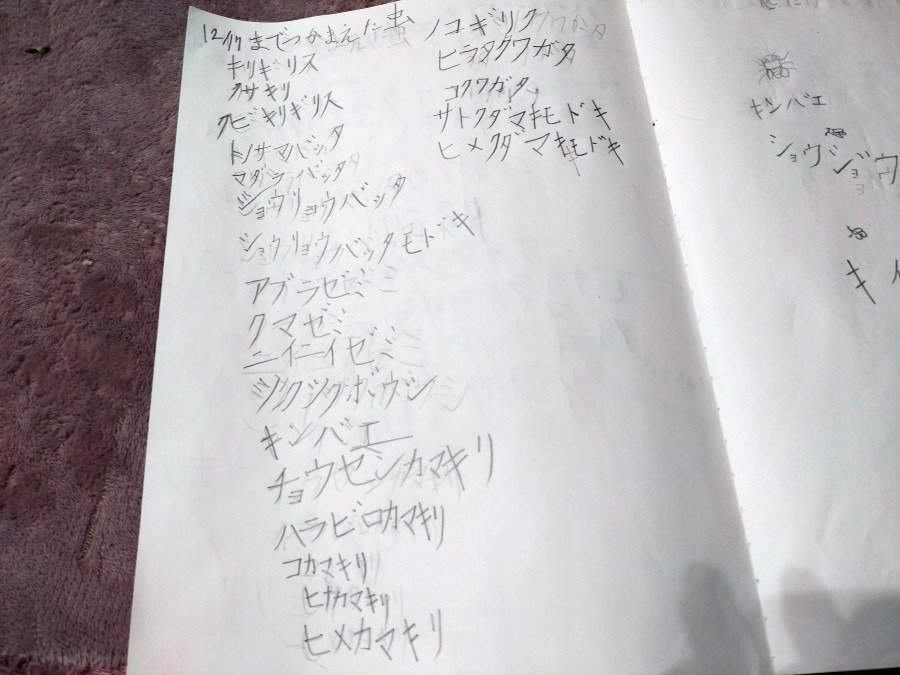 12/17までつかまえた虫
キリギリス
クサキリ
クビキリギリス
トノサマバッタ
マダラバッタ
ショウリョウバッタ
ショウリョウバッタモドキ
アブラゼミ
クマゼミ
ニイニイゼミ
ツクツクボウシ
キンバエ
チョウセンカマキリ
ハラビロカマキリ
コカマキリ
ヒナカマキリ
ヒメカマキリ
ノコギリクワガタ
ヒラタクワガタ
コクワガタ
サトクダマキモドキ
ヒメクダマキモドキ
キンバエ
ショウジョウ
キイ